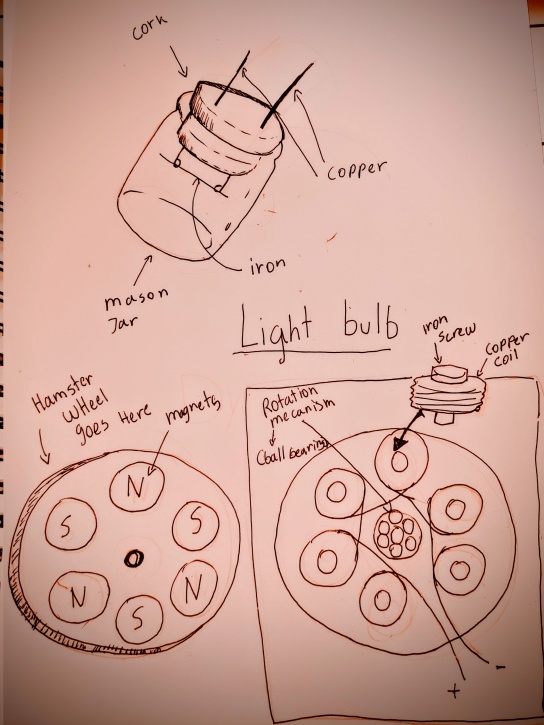 cork
copper
iron
mason
Jar
Light bulb
iron
screw
copper
coil
Hamster
Wheel
goes Here
magnets
Rotation
mecanism
Cball bearing
N
S
S
N
N
S
+
-